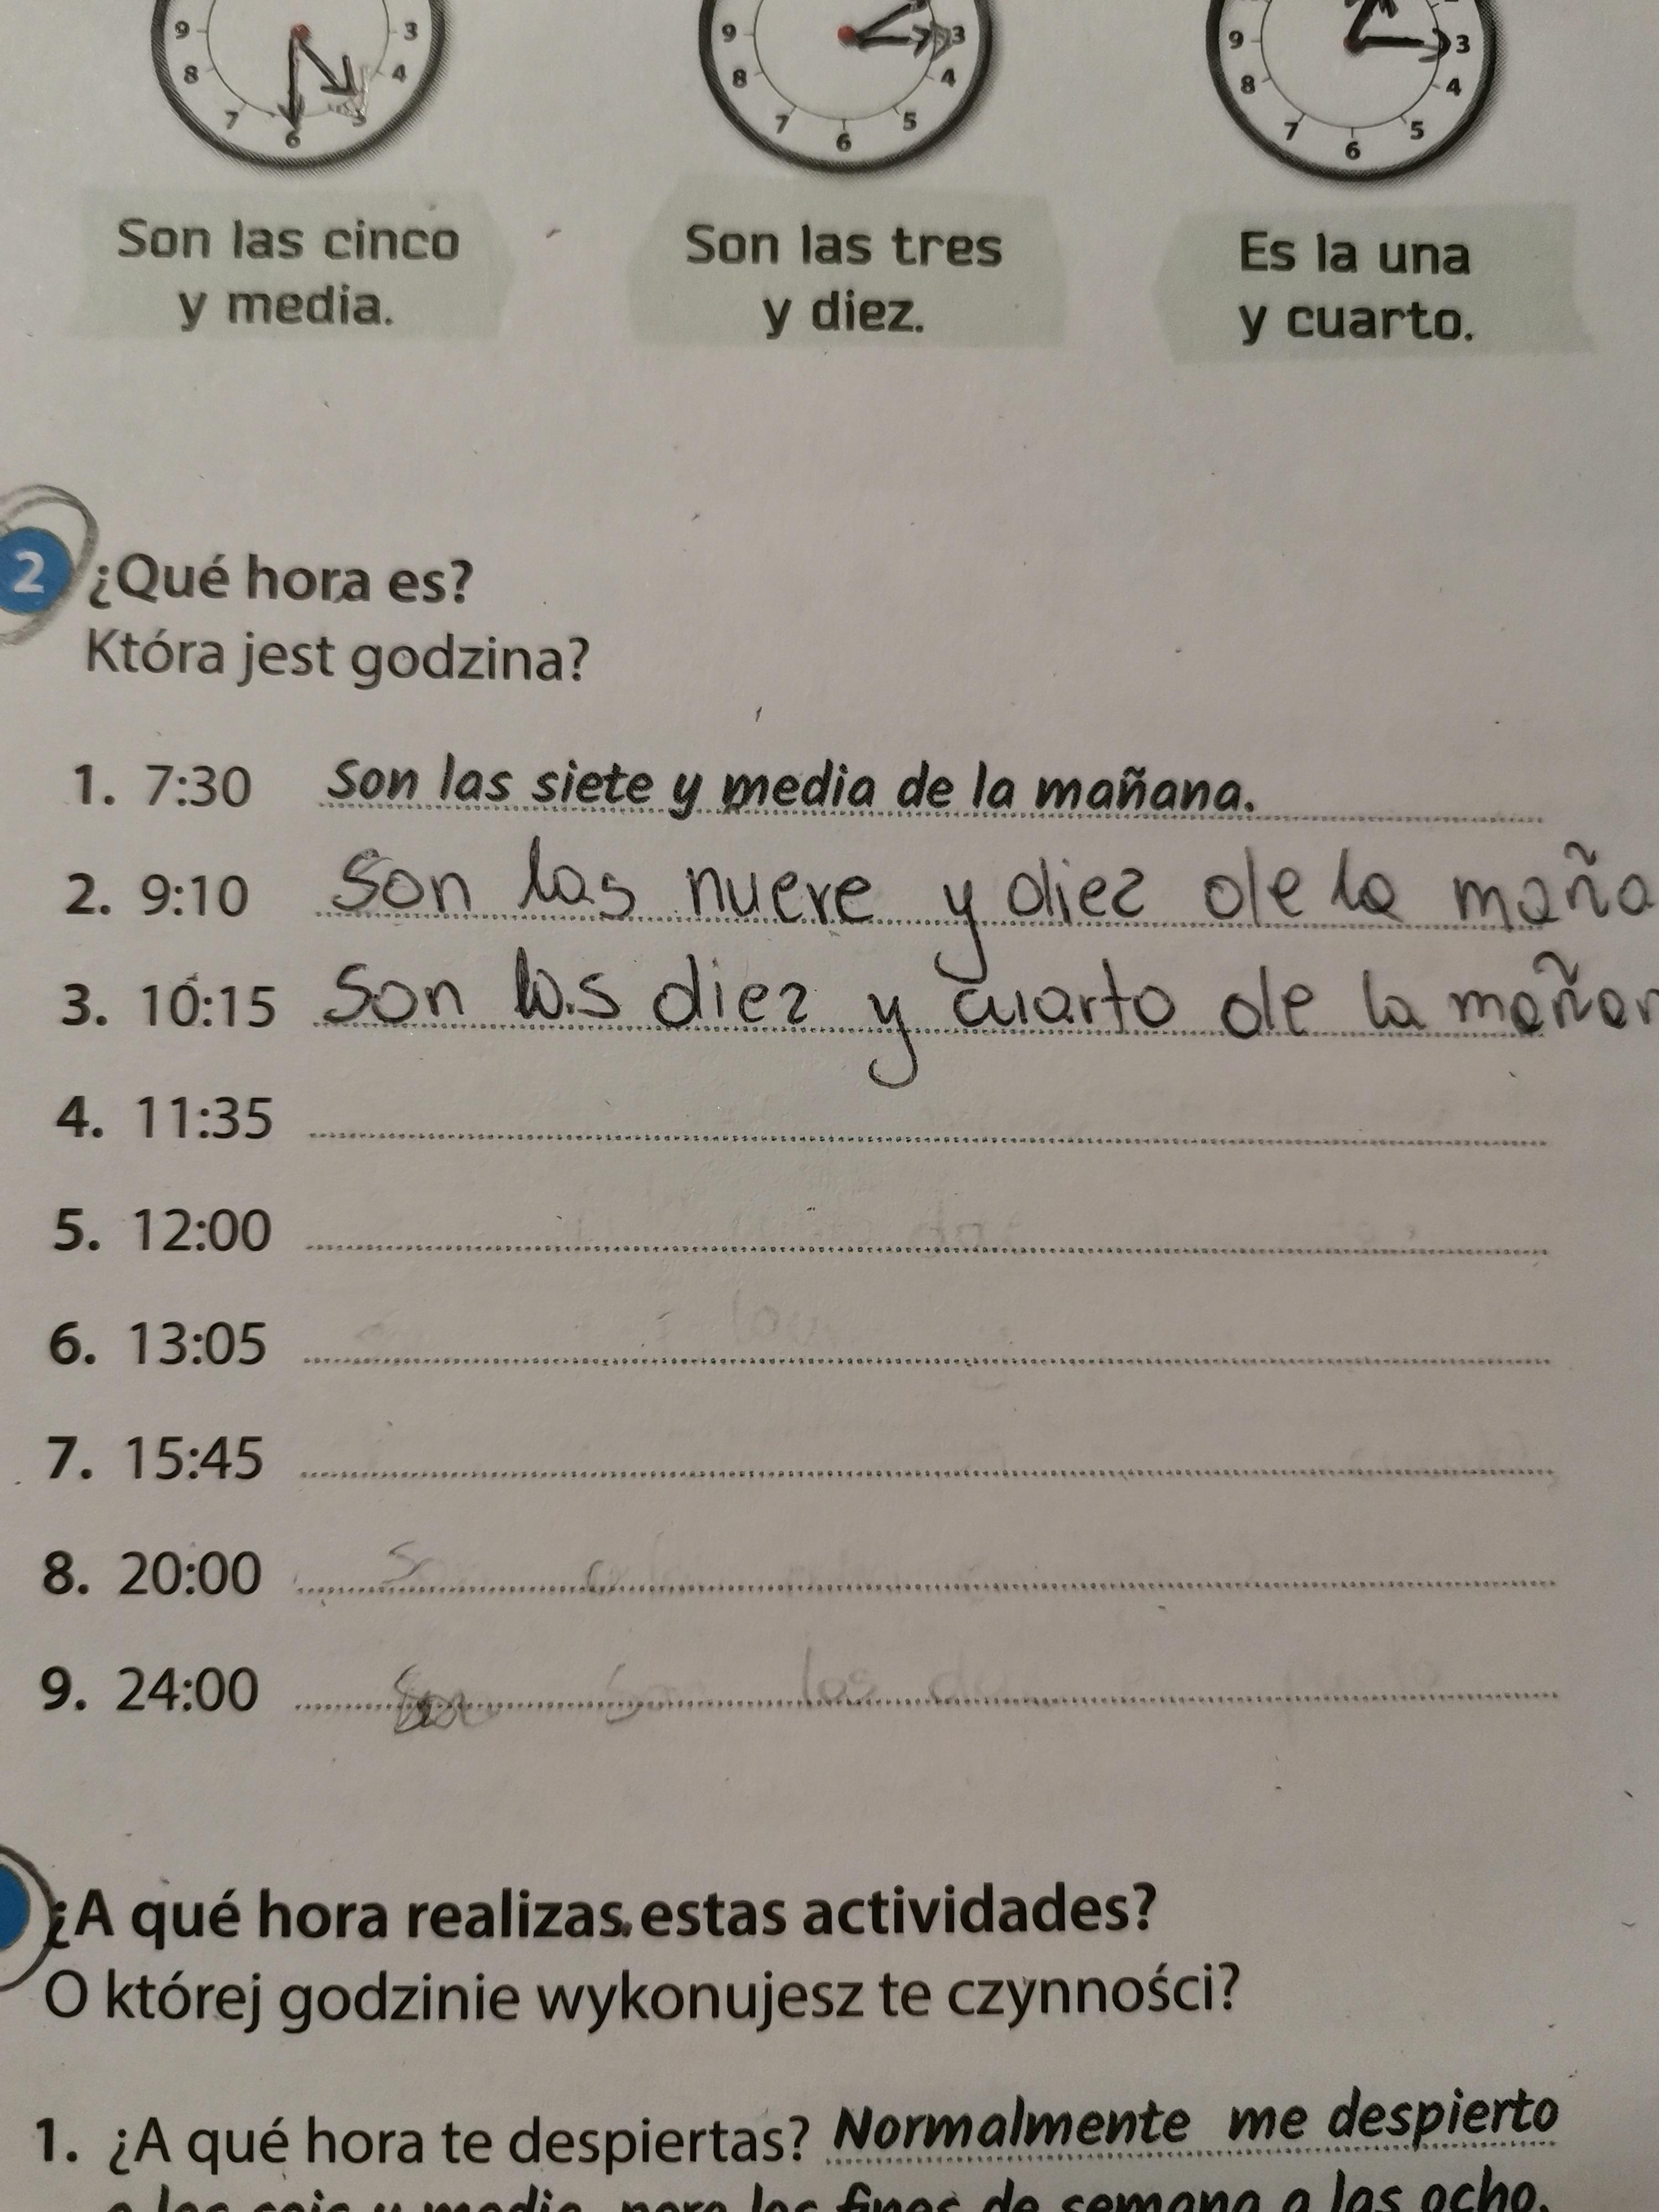 9 3 9 3 9 3
8 4 8 4 8 4
7 6 5 7 6 5 7 6 5
Son las cinco y media.
Son las tres y diez.
Es la una y cuarto.
2 ¿Qué hora es?
Która jest godzina?
1. 7:30 Son las siete y media de la mañana.
2. 9:10 Son las nueve y diez de la maña
3. 10:15 Son las diez y cuarto de la mañan
4. 11:35
5. 12:00
6. 13:05
7. 15:45
8. 20:00
9. 24:00
¿A qué hora realizas estas actividades?
O której godzinie wykonujesz te czynności?
1. ¿A qué hora te despiertas? Normalmente me despierto
a las seis y media, pero los fines de semana a las ocho.